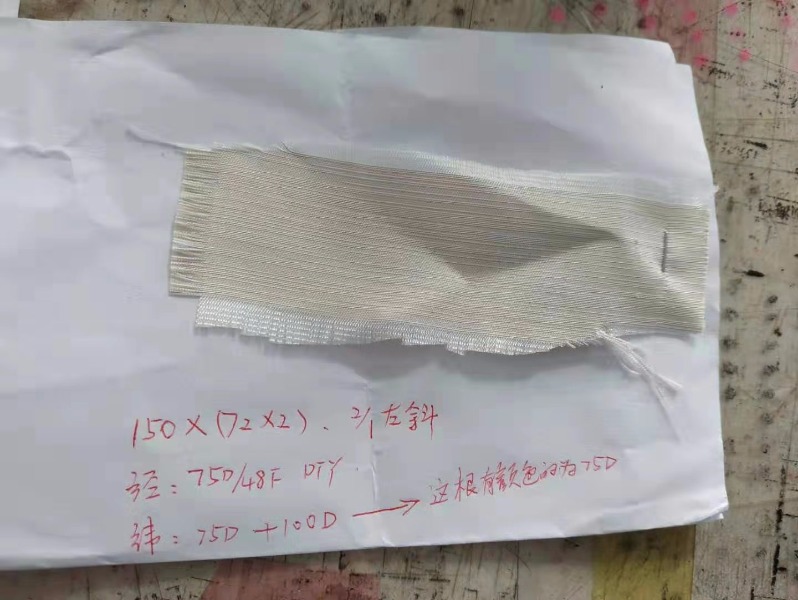 150×(72×2)、2/1左斜
经:75D/48F DTY
纬:75D+100D → 这根有颜色的为75D